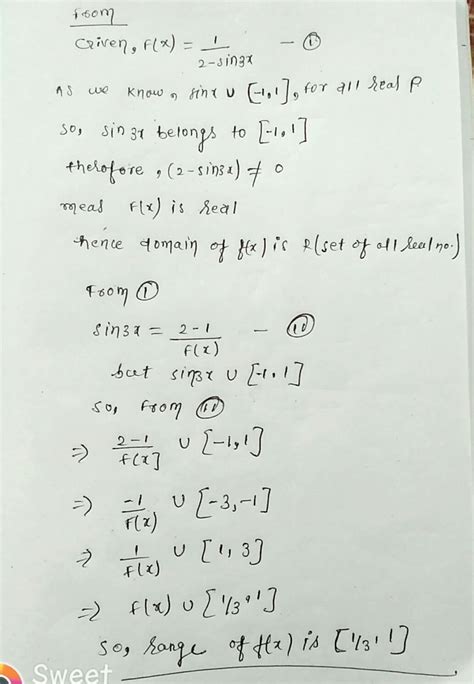 From
Given, f(x) = 1/(2-sin3x) — ①
As we know, sinx ∪ [-1,1], for all real
so, sin3x belongs to [-1,1]
therefore, (2-sin3x) ≠ 0
f(x) is real
hence domain of f(x) is R (set of all real no.)
From ①
sin3x = (2-1)/f(x) — ⑪
but sin3x ∪ [-1,1]
so, from ⑪
⇒ (2-1)/f(x] ∪ [-1,1]
⇒ -1/f(x) ∪ [-3,-1]
⇒ 1/f(x) ∪ [1,3]
⇒ f(x) ∪ [1/3,1]
so, range of f(x) is [1/3,1]
Sweet